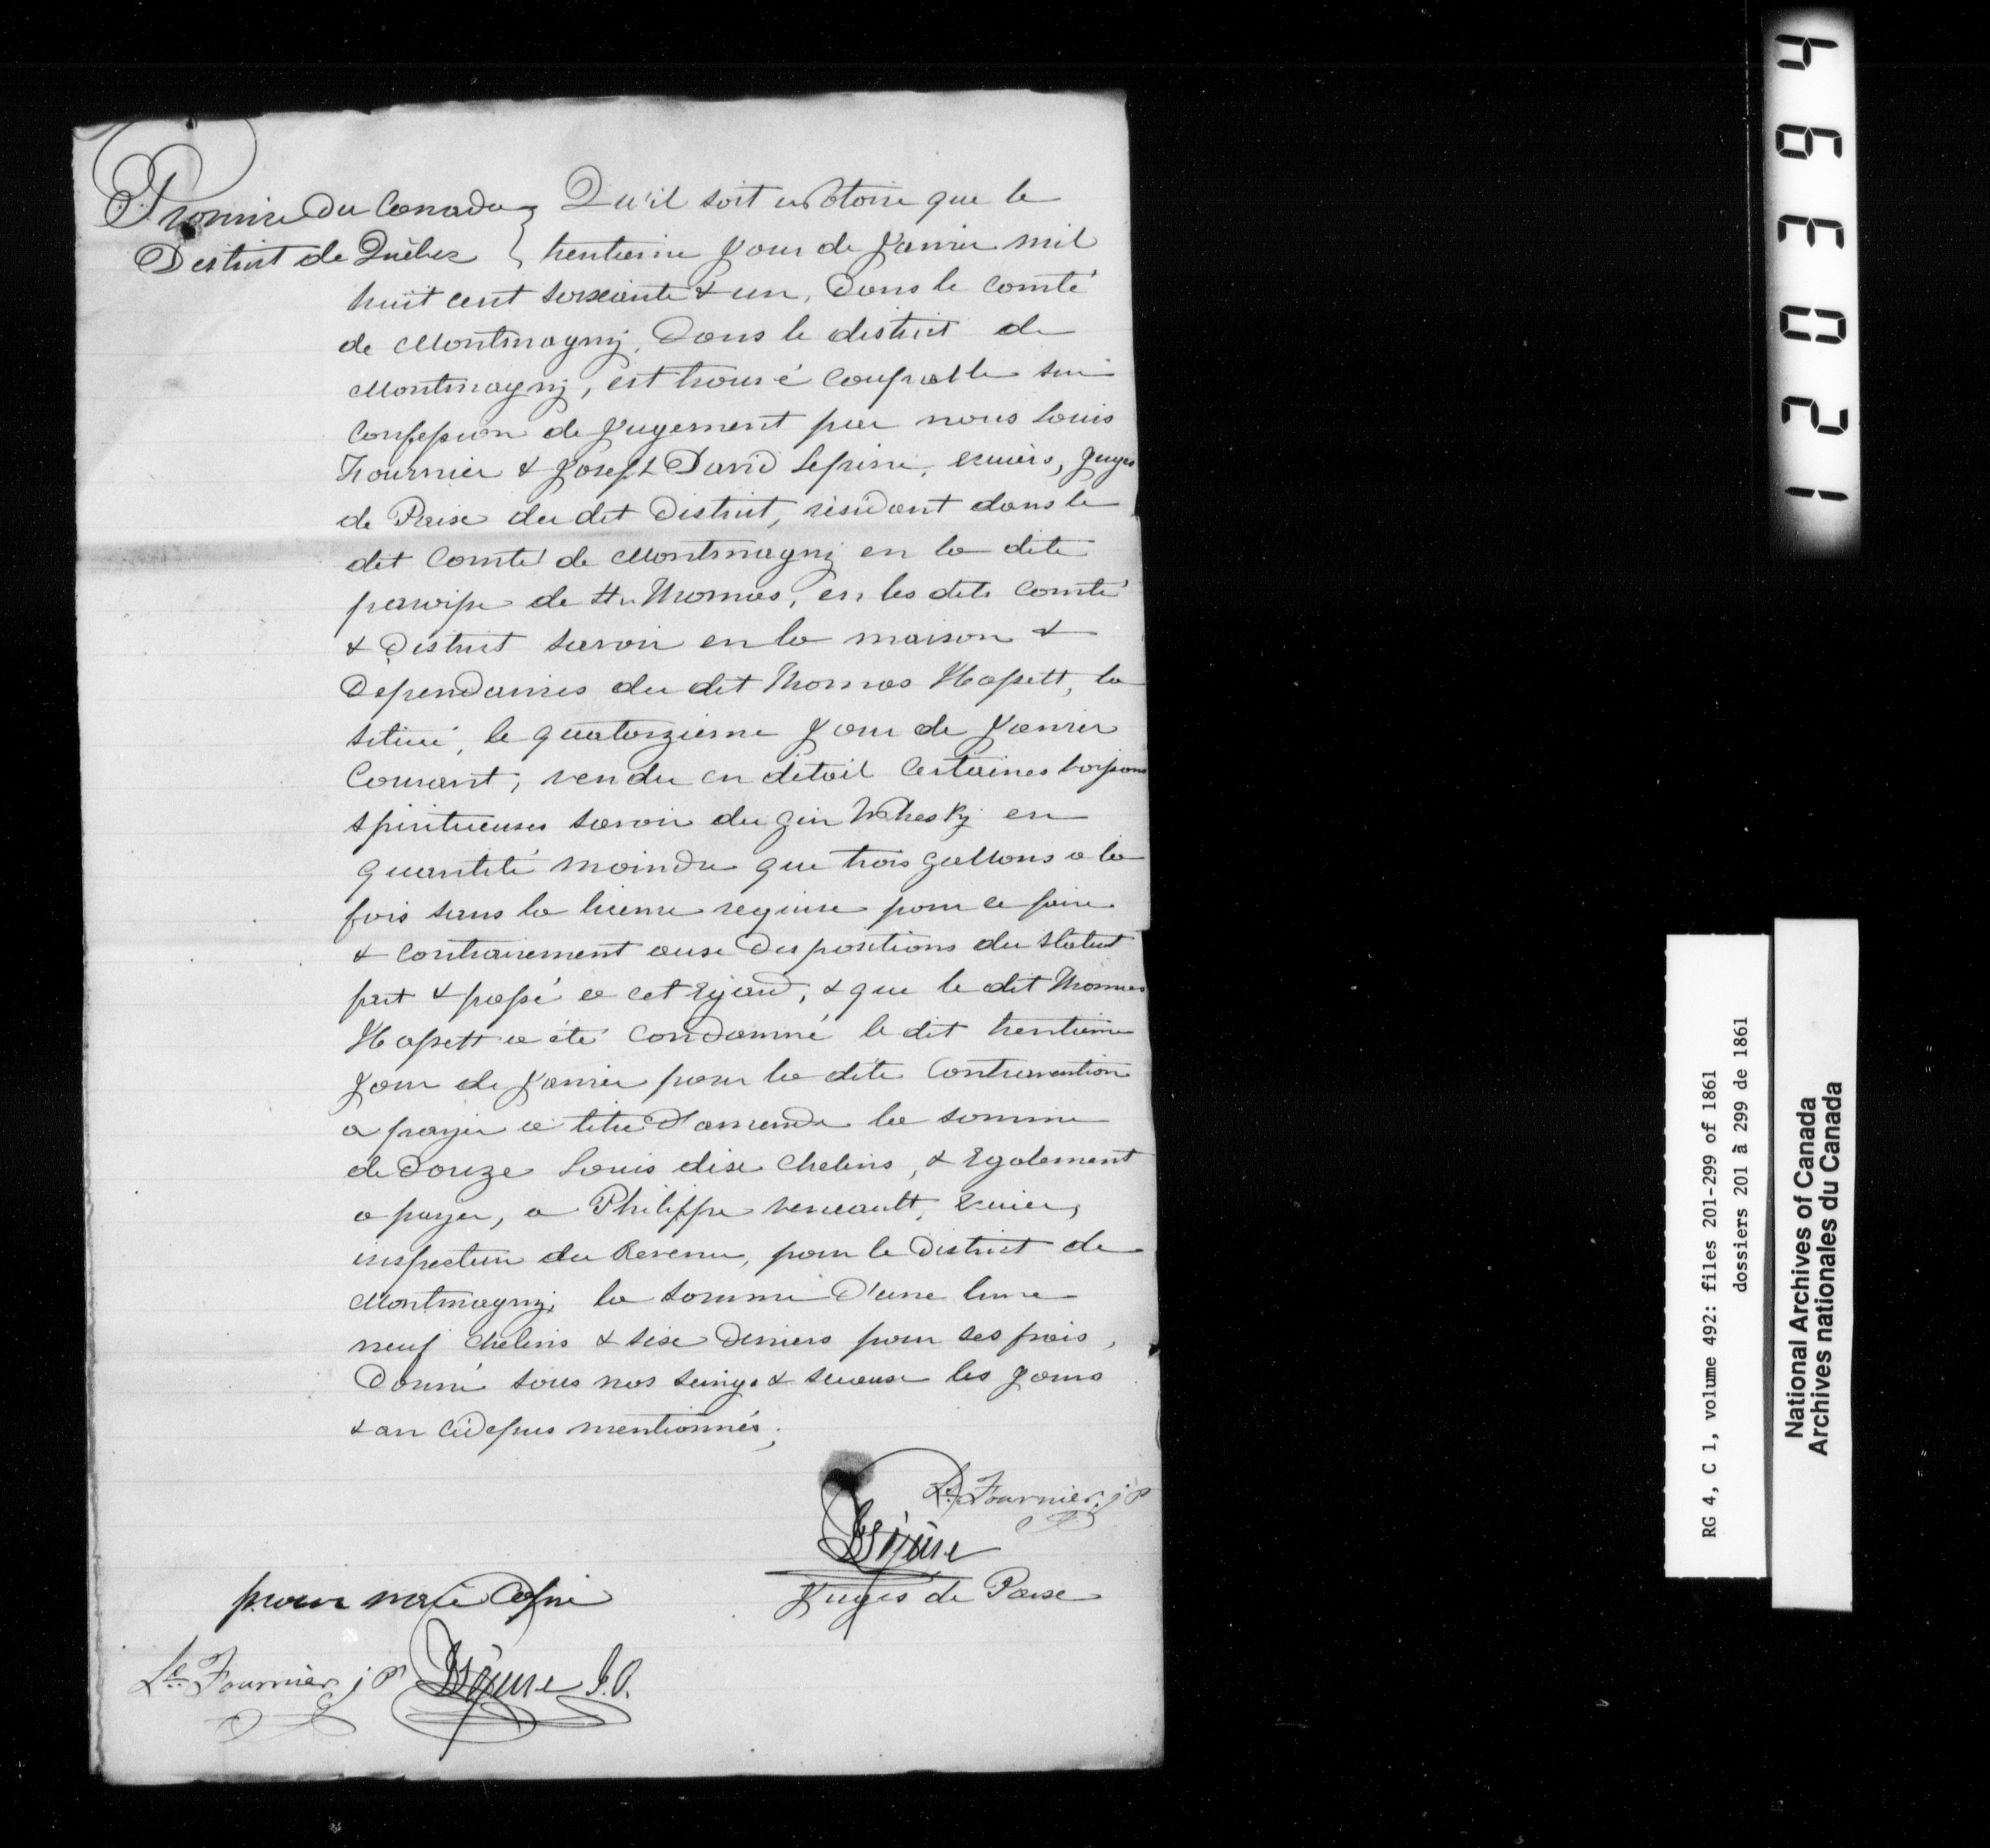 Province du Canada } Qu'il soit notoire que le
District de Québec } trentième jour de janvier mil
huit cent soixante & un, dans le comté
de Montmagny, dans le district de
Montmagny, est trouvé coupable sur
confession de jugement par nous Louis
Fournier & Joseph David Lepine, ecuiers, juges
de Paix du dit District, résidant dans le
dit Comté de Montmagny en la dite
paroisse de St. Thomas, en les dits Comté
& District savoir en la maison &
Dependances du dit Thomas Hassett, la
situé, le quatorzième jour de janvier
Courant, vendu en détail certaines boissons
spiritueuses savoir du gin Whesky en
quantité moindre que trois gallons a la
fois sans la license requise pour ce faire
& contrairement aux Dispositions du statut
fait & passé a cet Egard, & que le dit Thomas
Hassett a été condamné le dit trentième
jour de janvier pour la dite Contravention
a payer a titre D'amende la somme
de Douze Louis dix chelins, & Egalement
a payer, a Philippe , Ecuier,
inspecteur du Revenu, pour le District de
Montmagny, la somme D'une livre
neuf chelins & six Deniers pour ses frais,
Donné sous nos seings & sceaux les jours
& an cidessus mentionnés.
Ls. Fournier j P
Lépine
Juges de Paix
pour vraie Copie
Ls. Fournier j P Lépine J.P.
1203 64
RG 4, C 1, volume 492: files 201-299 of 1861
dossiers 201 à 299 de 1861
National Archives of Canada
Archives nationales du Canada